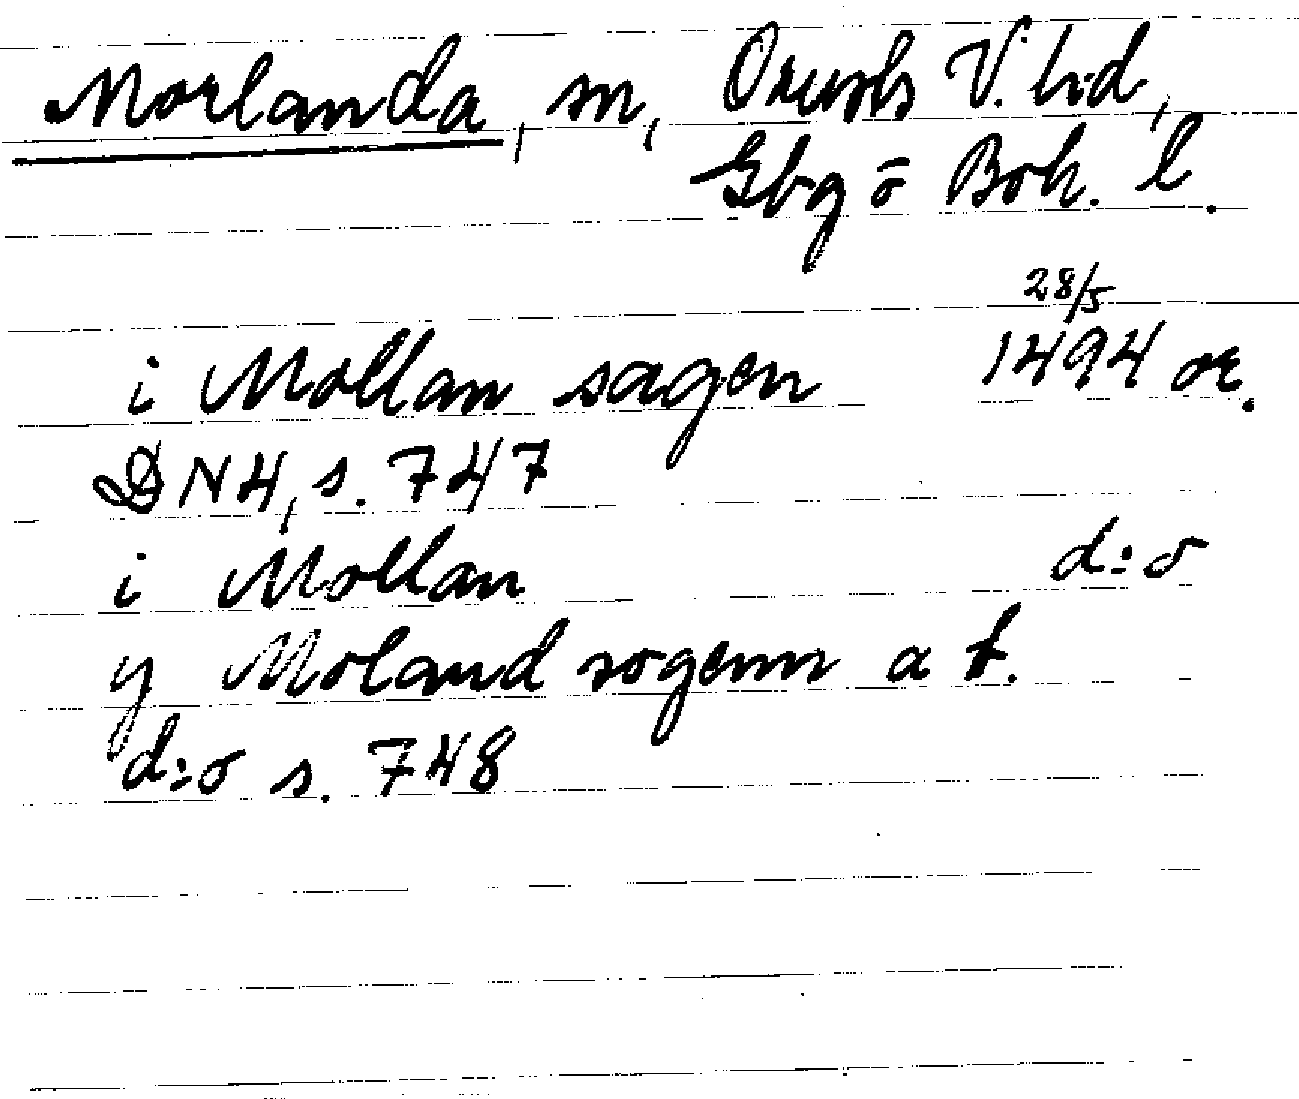 Morlanda, sn, Orusts V. hd,
Gbg o Boh. l.
i Mollan sagen 28/5 1494 or.
DN 4, s. 747
i Mollan d:o
y Moland sogenn a t.
d:o s. 748